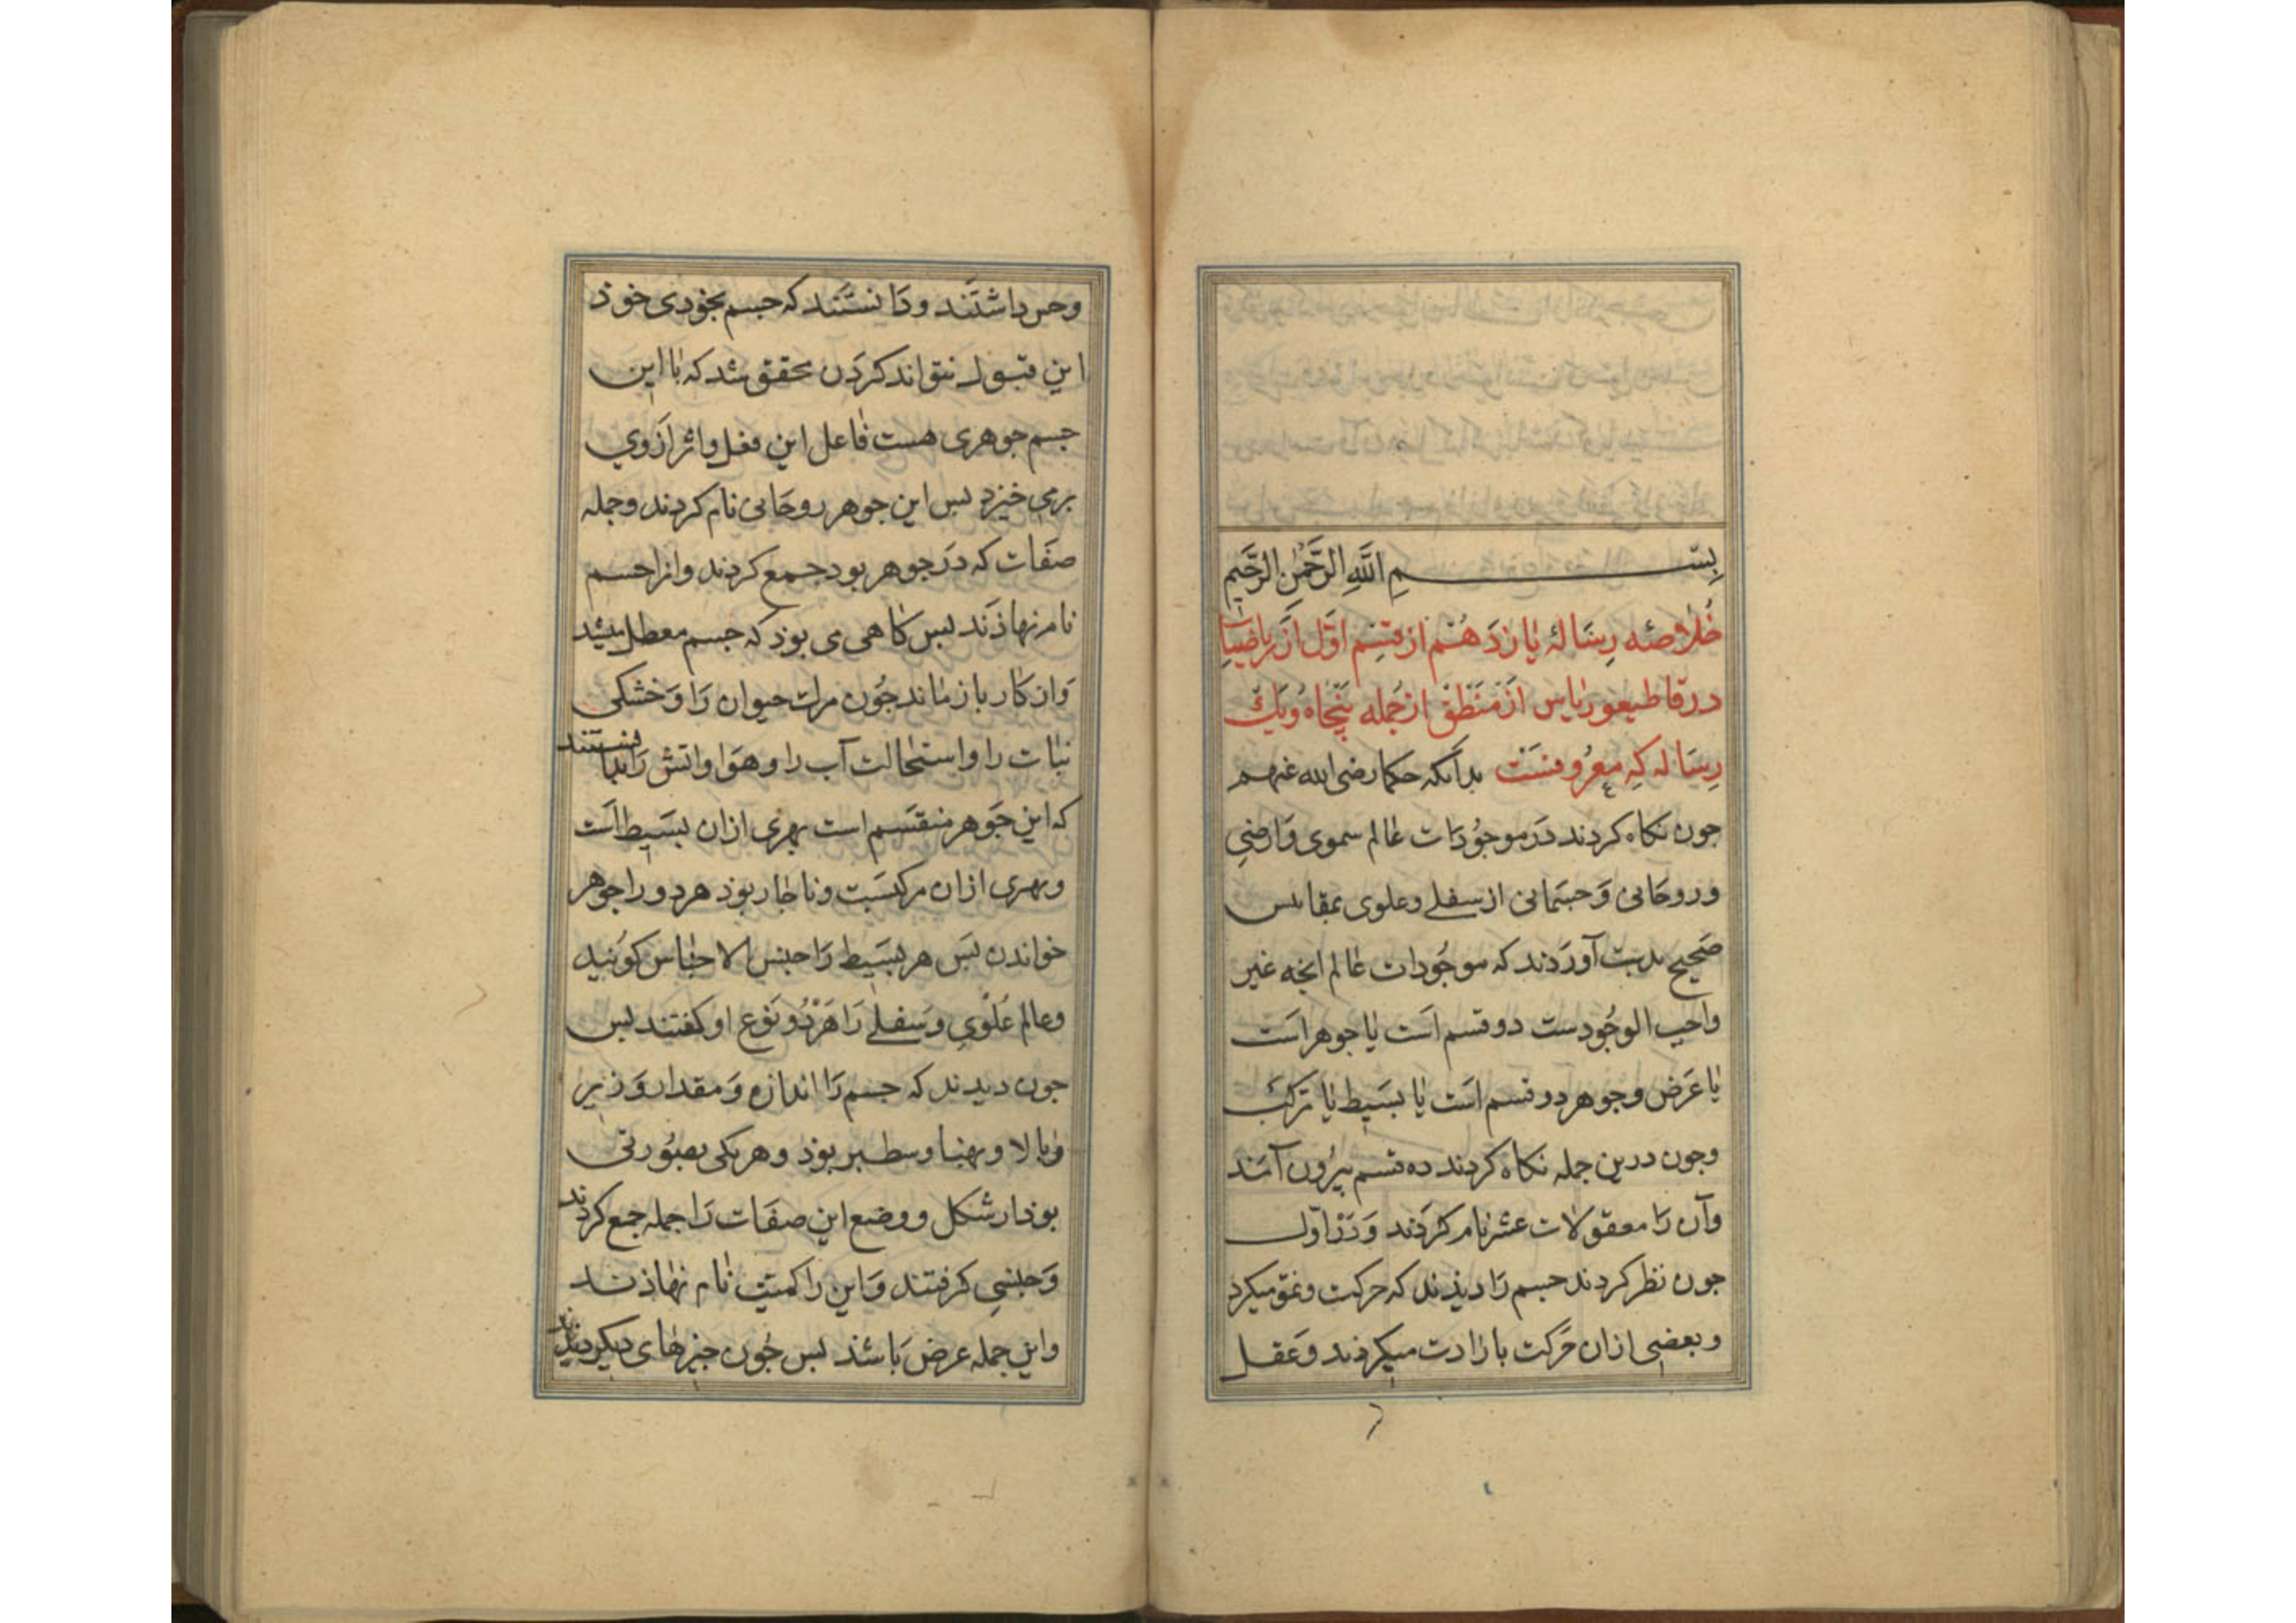 بِسْمِ اللَّهِ الرَّحْمٰنِ الرَّحِيمِ
خُلاصَهٔ رِسَالهٔ یازدَهُم از قِسِم اوّل اَز ریاضیات
در قاطیغوریاس از مَنْطق از جُمله پنجاه ویک
رِسَاله کِه معرُوفسَت بدانکه حکما رضی الله عنهم
جون نکاه کردند دَر موجُودَات عالم سموی وَارضی
وروحَانی وَجسمَانی از سفلی وعلوی بمقاییس
صَحیح بدست آورَدند که موجُودات عالم انجه غیر
واجب الوجُودست دو قسم اَست یا جوهر اَست
یا عَرَض وجوهر دو قسم اَست یا بسَیط یا مرکب
وجون درین جمله نکاه کردند ده قسم بیرُون آمَد
وآن رَا معقولات عشر نام کردَند وَدَر اوّل
جون نظر کردند جسم رَا دیذند که حرکت ونمو میکرد
وبعضی ازان حَرکت بارادت میکردند وَعقل
وحس داشتَند ودَانستَند که جسم بخودی خوذ
این قبول نتواند کردَن محقق شد که با این
جسم جوهری هست فاعل این فعل واثر اَزوی
برمی خیزد بس این جوهر روحَانی نام کردند وجمله
صفَات که دَر جوهر بود جمع کردند وانرا جسم
نام نهاذَند بس کاهی می بوذ که جسم معطل میشد
وَاز کار باز ماند جُون مرات حیوان رَا وَخشکی
نبات را واستحالت آب را وهوَا واتش رَا بدانستند
که این جَوهر منقسَم است بهری ازان بسَیط اَست
وبهری ازان مرکبسَت وناجار بوذ هر دو را جوهر
خواندن بسَ هر بسَیط رَا جنس الاجناس کویُند
وعالم عُلوی وسَفلی رَا هَر دُو نوَع او کفتند بس
جون دیدند که جسم رَا اندازه وَمقدار وَزیر
وبالا وبهنا وسطبر بوذ وهر یکی بصوُرتی
بوذ از شکل ووضع این صفَات رَا جمله جمع کردند
وَجنسی کرفتند وَاین را کمیّت نام نهاذند
واین جمله عرض بَاشد بس جُون جیزهای دیکر دیدند